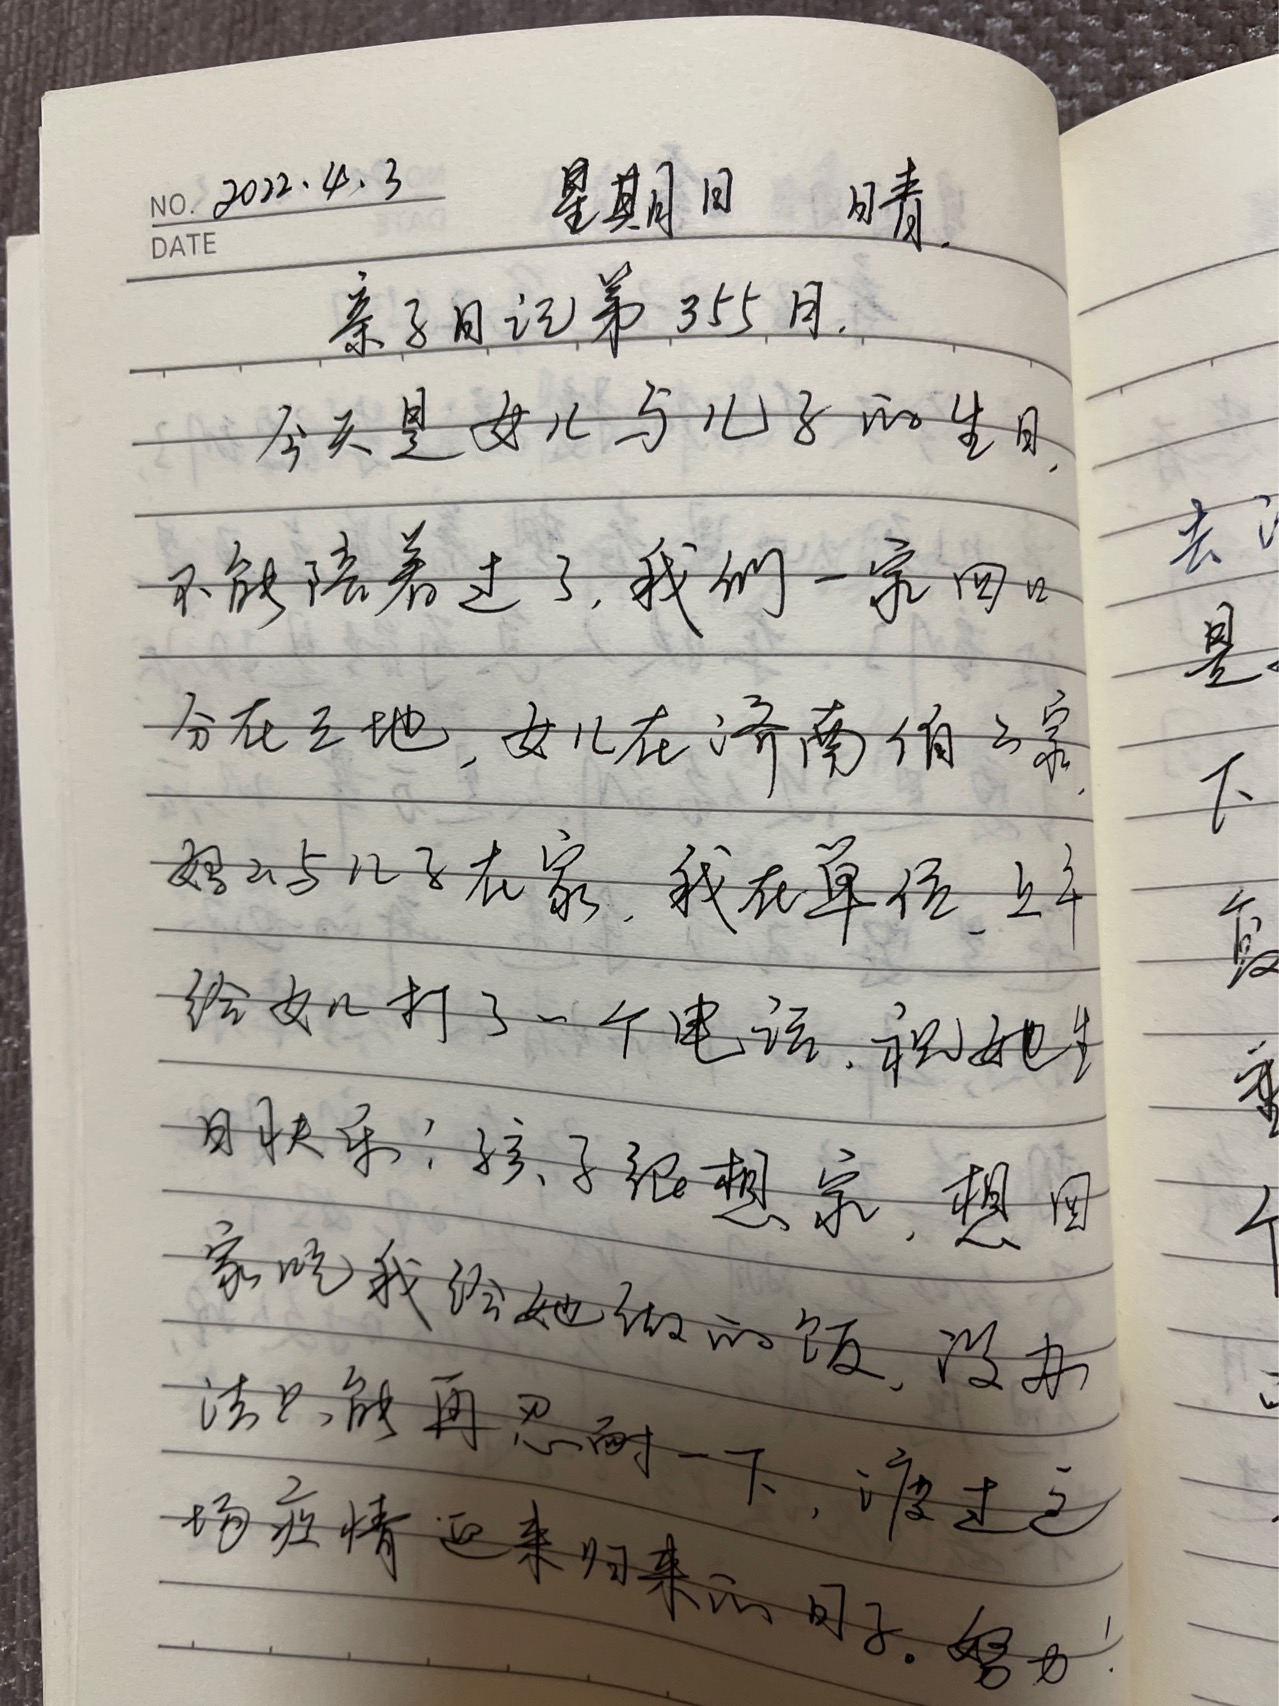 NO. 2022.4.3 星期日 晴.
DATE
亲子日记第355日.
今天是女儿与儿子的生日,
不能陪着过了,我们一家四口
分在三地,女儿在济南伯伯家,
妈妈与儿子在家,我在单位,上午
给女儿打了一个电话,祝她生
日快乐!孩子很想家,想回
家吃我给她做的饭,没办
法只能再忍耐一下,渡过这
场疫情迎来归来的日子。努力!
去
是
下
复
重
个